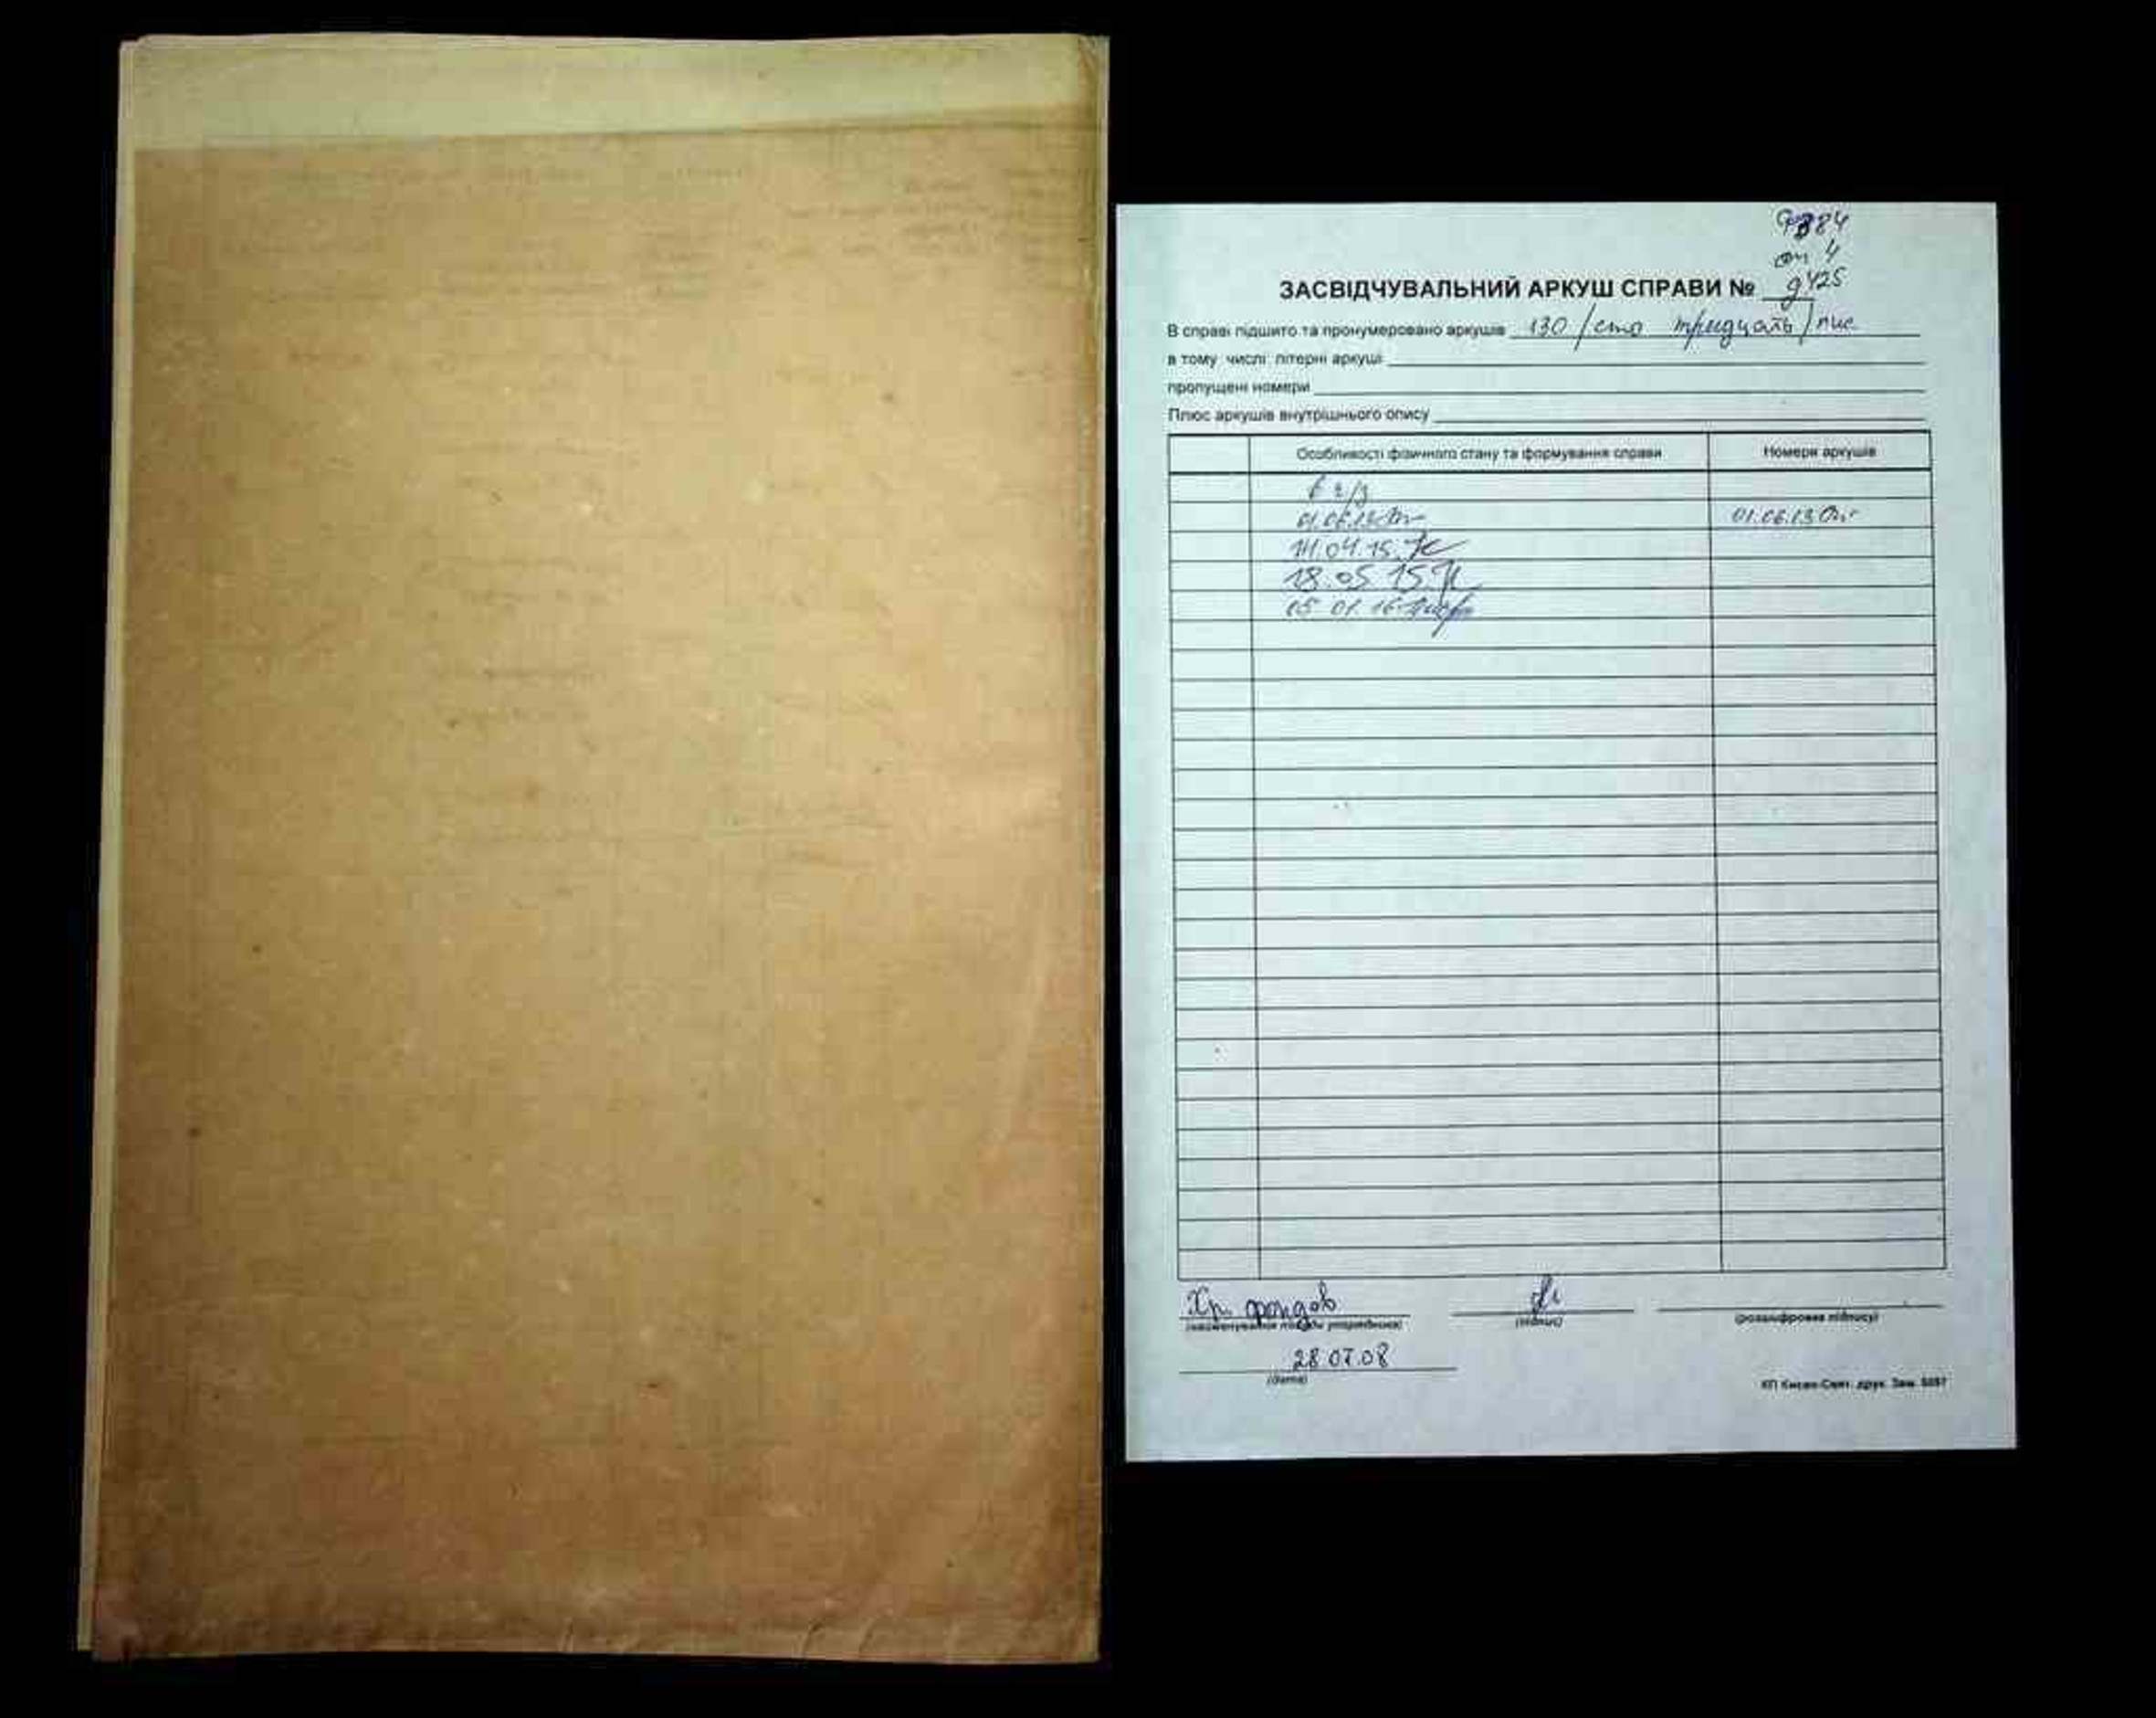 Ф 884
оп 4
д 425
ЗАСВІДЧУВАЛЬНИЙ АРКУШ СПРАВИ №
В справі підшито та пронумеровано аркушів 130 /сто тридцать/
в тому числі літерні аркуші
пропущені номери
Плюс аркушів внутрішнього опису
Особливості фізичного стану та формування справи Номери аркушів
01.06.13 01.06.13
14.04.15
18.05.15
05.01.16
Хр. фондов
(найменування посади упорядника) (підпис) (розшифровка підпису)
28.07.08
(дата)